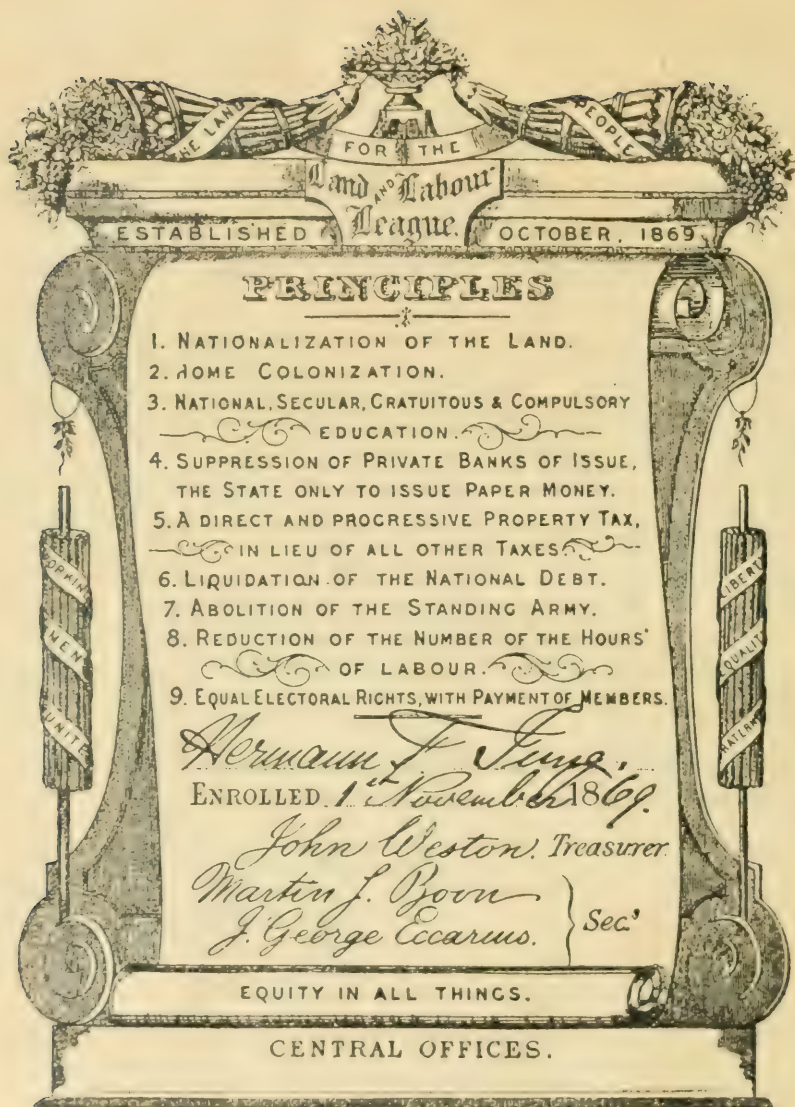 THE LAND
FOR THE
PEOPLE
Land AND Labour
League.
ESTABLISHED
OCTOBER, 1869
PRINCIPLES
1. NATIONALIZATION OF THE LAND.
2. HOME COLONIZATION.
3. NATIONAL, SECULAR, GRATUITOUS & COMPULSORY
EDUCATION.
4. SUPPRESSION OF PRIVATE BANKS OF ISSUE,
THE STATE ONLY TO ISSUE PAPER MONEY.
5. A DIRECT AND PROGRESSIVE PROPERTY TAX,
IN LIEU OF ALL OTHER TAXES
6. LIQUIDATION OF THE NATIONAL DEBT.
7. ABOLITION OF THE STANDING ARMY.
8. REDUCTION OF THE NUMBER OF THE HOURS'
OF LABOUR.
9. EQUAL ELECTORAL RIGHTS, WITH PAYMENT OF MEMBERS.
WORKING
MEN
UNITE
LIBERTY
EQUALITY
Hermann F Jung.
ENROLLED 1st November 1869.
John Weston. Treasurer
Martin J. Boon
J. George Eccarius.
Secs
EQUITY IN ALL THINGS.
CENTRAL OFFICES.